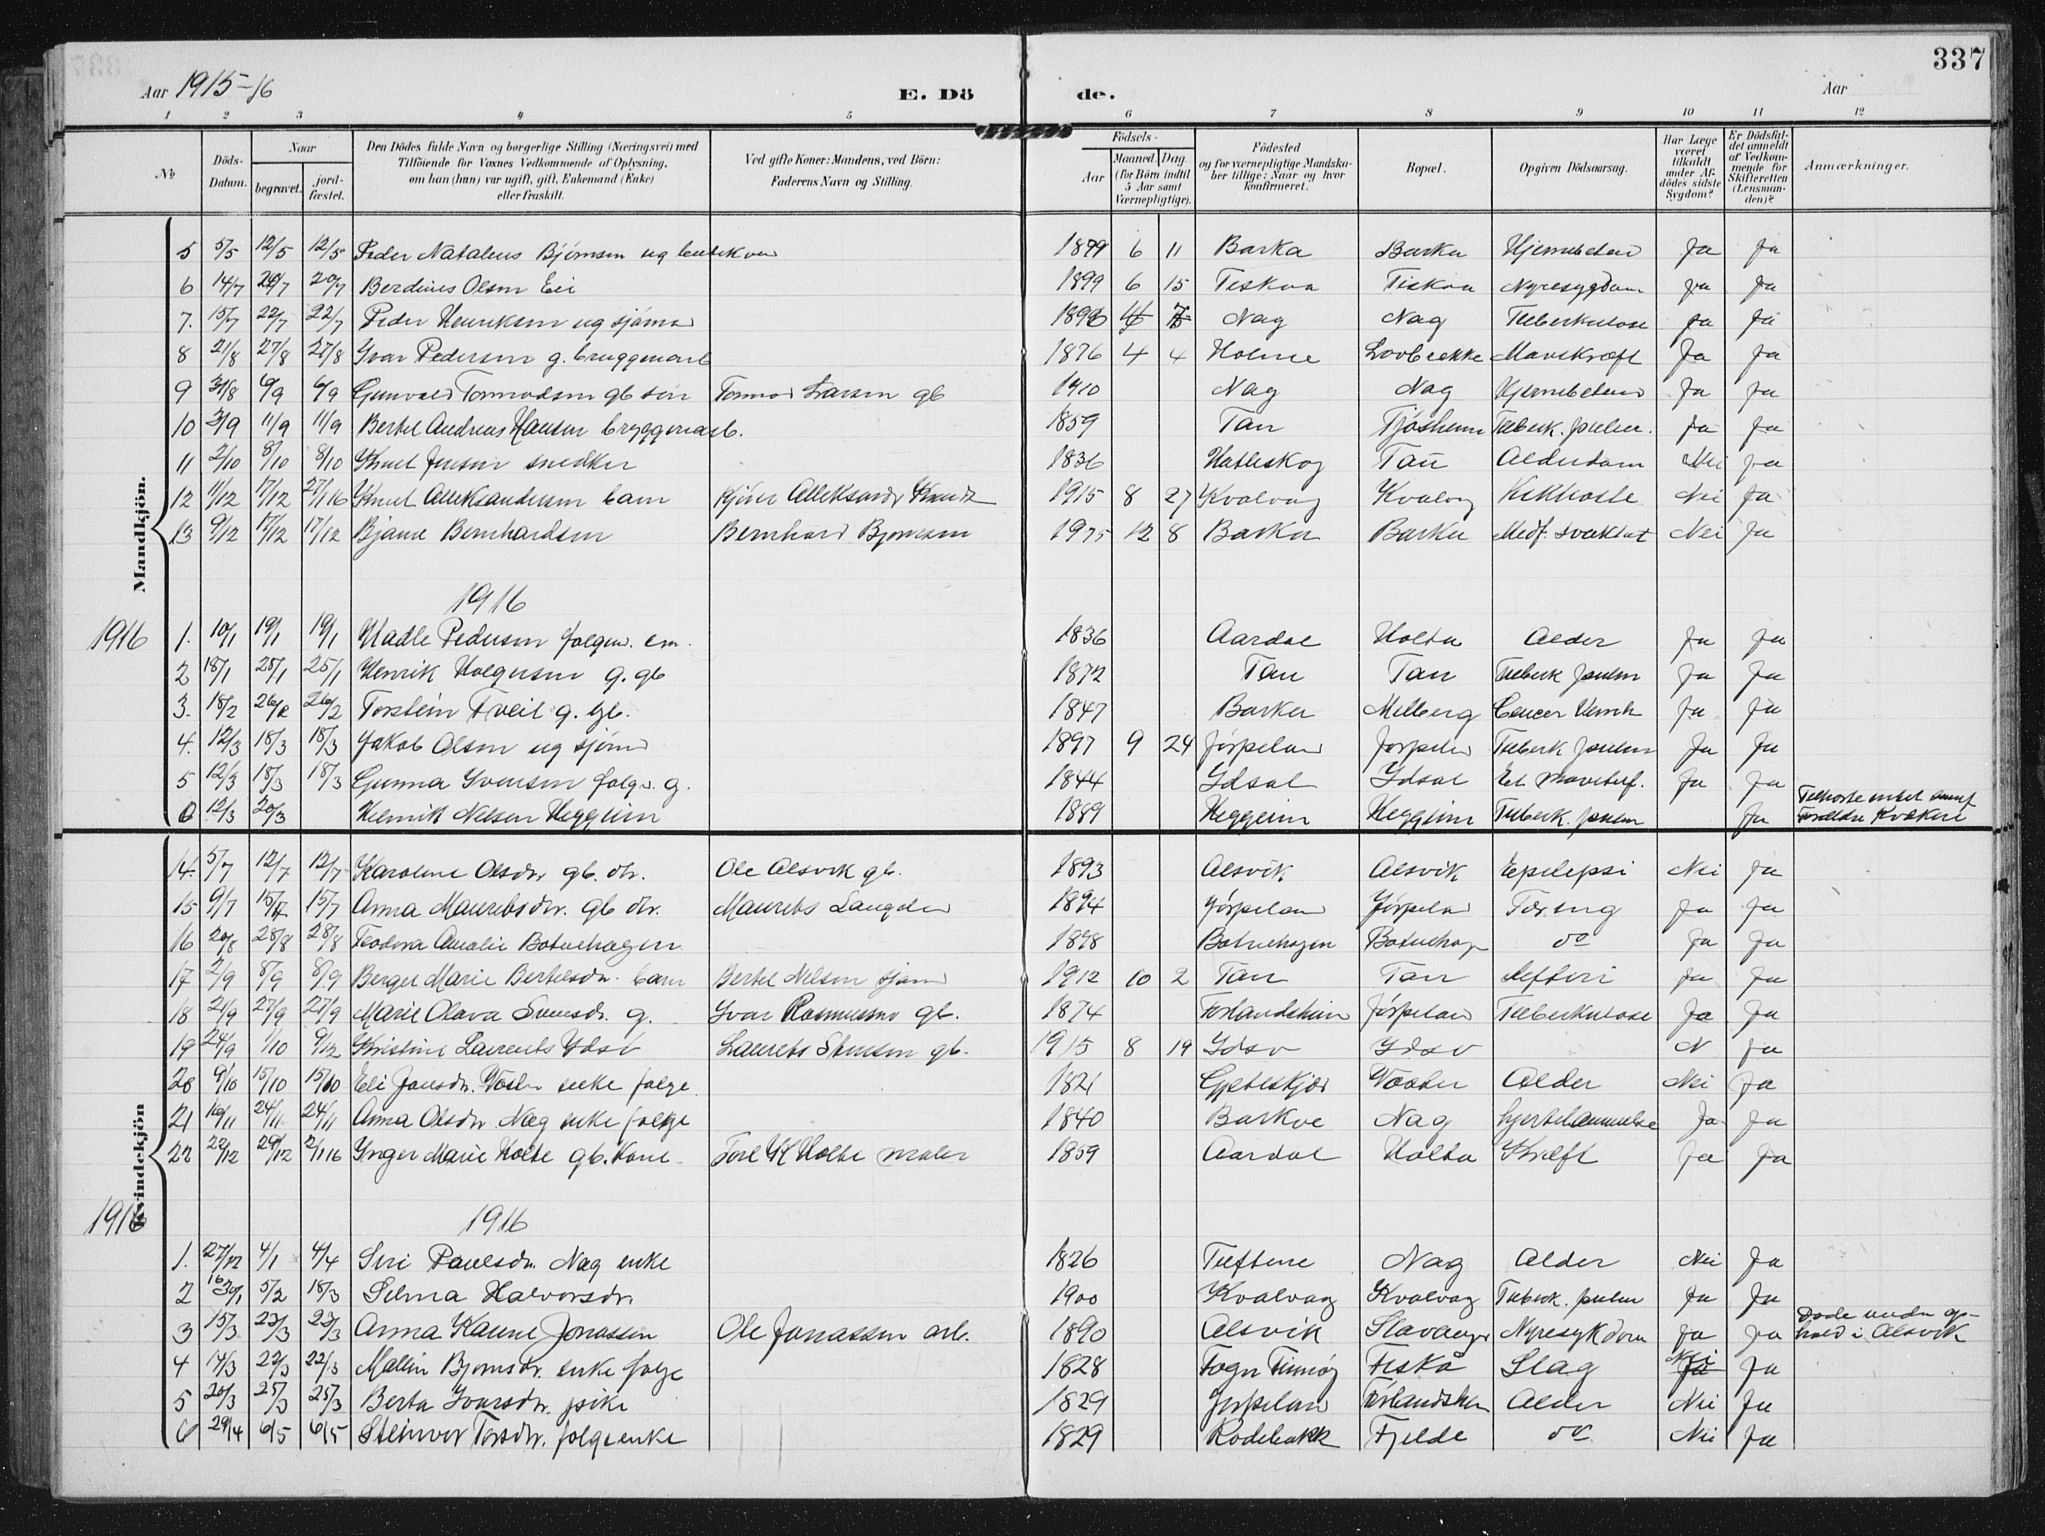 337
Aar 1915-16 E. Döde. Aar
1 2 3 4 5 6 7 8 9 10 11 12
№ Döds-Datum. Naar begravet. jord-fæstet. Den Dödes fulde Navn og borgerlige Stilling (Næringsvei) med Tilföiende for Voxnes Vedkommende af Oplysning, om han (hun) var ugift, gift, Enkemand (Enke) eller fraskilt. Ved gifte Koner: Mandens, ved Börn: Faderens Navn og Stilling. Födsels- Aar Maaned. Dag. (for Börn indtil 5 Aar samt Værnepligtige). Födested og for værnepligtige Mandskaber tillige: Naar og hvor Konfirmeret. Bopæl. Opgiven Dödsaarsag. Har Læge været tilkaldt under Afdödes sidste Sygdom? Er Dödsfaldet anmeldt af Vedkommende for Skifteretten (Lensmanden)? Anmærkninger.
Mandkjön.
5 5/5 12/5 12/5 Peder Natalius Bjørnsen ug 1899 6 11 Barka Barka Ja Ja
6 14/7 20/7 20/7 Berdines Olsen Eie 1899 6 15 Tiskaa Tiskaa Nyresygdom ja ja
7. 15/7 22/7 22/7 Peder Henriksen ug sjømd Nag Nag Tuberkulose Ja Ja
8 21/8 27/8 27/8 Ivar Pedersen g. bryggeriarb 1876 4 4 Holme Lovbrække Mavekræft Ja Ja
9 31/8 6/9 6/9 Gunvald Tormodsen gb søn Tormod Larsen gb 1910 Nag Nag Ja Ja
10 3/9 11/9 11/9 Bertel Andreas Hansen bryggeriarb. 1859 Tau Tjøsheim Tuberk. pulm. Ja Ja
11 2/10 8/10 8/10 Knut Jensen snedker 1836 Hatleskog Tau Alderdom Nei ja
12 11/12 17/12 27/1 16 Knut Alleksandersen barn Alleksandr Knuts 1915 8 27 Kvalvag Kvalvag Kikhoste Nei Ja
13 9/12 17/12 17/12 Bjarne Bernhardsen Bernhard Bjørnsen 1915 12 8 Barka Barka Medf. svakhet Nei Ja
1916
1916 1. 10/1 19/1 19/1 Madle Pedersen folgem. em. 1836 Aardal Holta Alder Ja Ja
2 18/1 25/1 25/1 Henrik Holgersen g. gb 1872 Tau Tau Tuberk pulm Ja Ja
3. 18/2 26/2 26/2 Torstein Tveit g. gb. 1847 Barka Melberg Cancer Ventr Ja Ja
4. 12/3 18/3 18/3 Jakob Olsen ug sjømd 1897 9 24 Jørpeland Jørpeld Tuberk pulm Ja Ja
5 12/3 18/3 18/3 Gunna Svensen folgm. g. 1844 Idsal Idsal Ja Ja
6 12/3 20/3 Helmik Nelsen Heggeim 1889 Heggeim Heggeim Tuberk. pulm Ja Forældre Kvækere
Kvindekjön
14. 5/7 12/7 12/7 Karoline Olsdr. gb. dtr. Ole Alsvik gb. 1893 Alsvik Alsvik Epilepsi Nei ja
15 9/7 15/7 15/7 Anna Mauritsdtr. gb dtr. Maurits Langeland 1894 Jørpeland Jørpeld Tæring Ja Ja
16 20/8 28/8 28/8 Teodora Amalie Botnehagen 1898 Botnehagen Botnehag do Ja Ja
17 2/9 8/9 8/9 Berger Marie Bertelsdr. barn Bertel Nelsen sjømd 1912 10 2 Tau Tau Difteri Ja Ja
18 21/9 27/9 27/9 Marie Olava Svensdr. g. Ivar Rasmussen gb. 1874 Førlandsheim Jørpeland Tuberkulose Ja Ja
19 24/9 1/10 9/12 Kristine Laurents Idsø Laurits Stensen gb. 1915 8 19 Idsø Idsø N Ja
20 9/10 15/10 15/10 Eli Jansdr. Voster enke folge 1821 Gjeteskjær Voster Alder Nei Ja
21 16/11 24/11 24/11 Anna Olsdr. Nag enke folge 1840 Barkve Nag hjertelammelse Ja Ja
22 22/12 29/12 2/1 16 Inger Marie Holte gb. Kone Torl K Holte maler 1859 Aardal Holta Kræft Ja Ja
1916
1916 1. 27/12 4/1 4/4 Siri Paulsdr. Nag enke 1826 Tuftene Nag Alder Nei Ja
2 30/1 5/2 18/3 Selma Halvorsdr. 1900 Kvalvag Kvalvag Tuberk. pulm Ja Ja
3 15/3 23/3 23/3 Anna Karine Jonassen Ole Jonassen arb. 1890 Alsvik Stavanger Nyresykdom Ja ja Døde under op-hold i Alsvik
4 14/3 22/3 22/3 Mallin Bjørnsdr. enke folge 1828 Fogn Finnøy Fiskå Slag Nei Ja
5 20/3 25/3 25/3 Berta Ivarsdr. pike 1829 Jørpeland Førlandshm Alder Nei Ja
6 29/4 6/5 6/5 Steinvor Torsdr. folgeenke 1829 Rodebakk Fjelde do Nei Ja